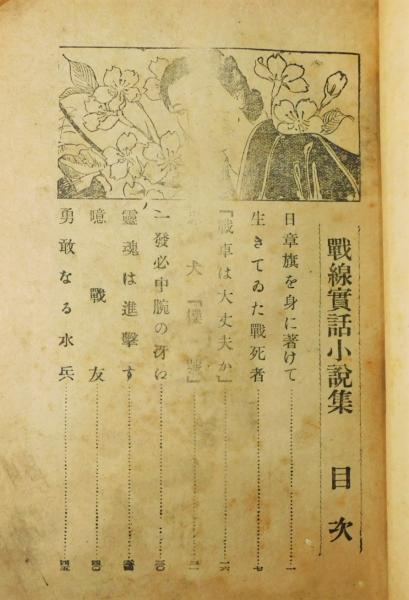 戰線實話小說集 目次
日章旗を身に著けて 一
生きてゐた戰死者 七
「戰車は大丈夫か」 一六
犬「僕 號」
一發必中腕の冴ゆ
靈魂は進擊す
噫戰友
勇敢なる水兵